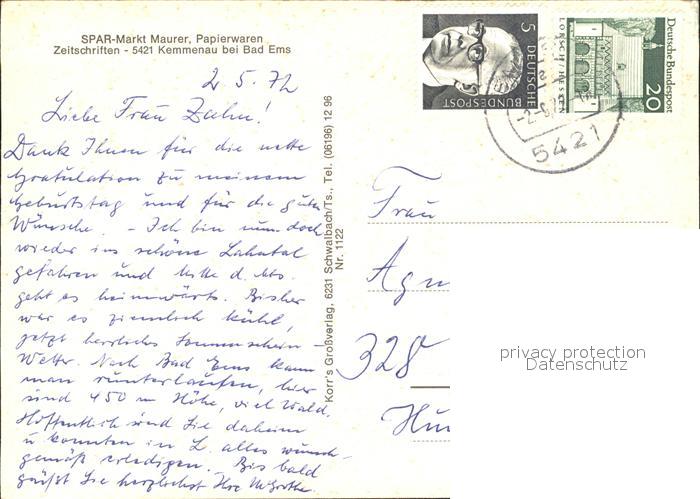 SPAR-Markt Maurer, Papierwaren
Zeitschriften - 5421 Kemmenau bei Bad Ems
2.5.72
Liebe Frau Zahn!
Dank Ihnen für die nette
Gratulation zu meinem
Geburtstag und für die guten
Wünsche. - Ich bin nun doch
wieder ins schöne Lahntal
gefahren und Mitte d. Mts.
geht es heimwärts. Bisher
war es ziemlich kühl,
jetzt herrliches Sonnenschein-
Wetter. Nach Bad Ems kann
man runterlaufen, hier
sind 450 m Höhe, viel Wald.
Hoffentlich sind Sie daheim
u konnten in L. alles wunsch-
gemäß erledigen. Bis bald
grüßt Sie herzlichst Ihre
Korr's Großverlag, 6231 Schwalbach/Ts., Tel. (06196) 12 96
Nr. 1122
5
DEUTSCHE
BUNDESPOST
Deutsche Bundespost
LORSCH/HESSEN
20
5421
Frau
Agn
328
Hun
privacy protection
Datenschutz